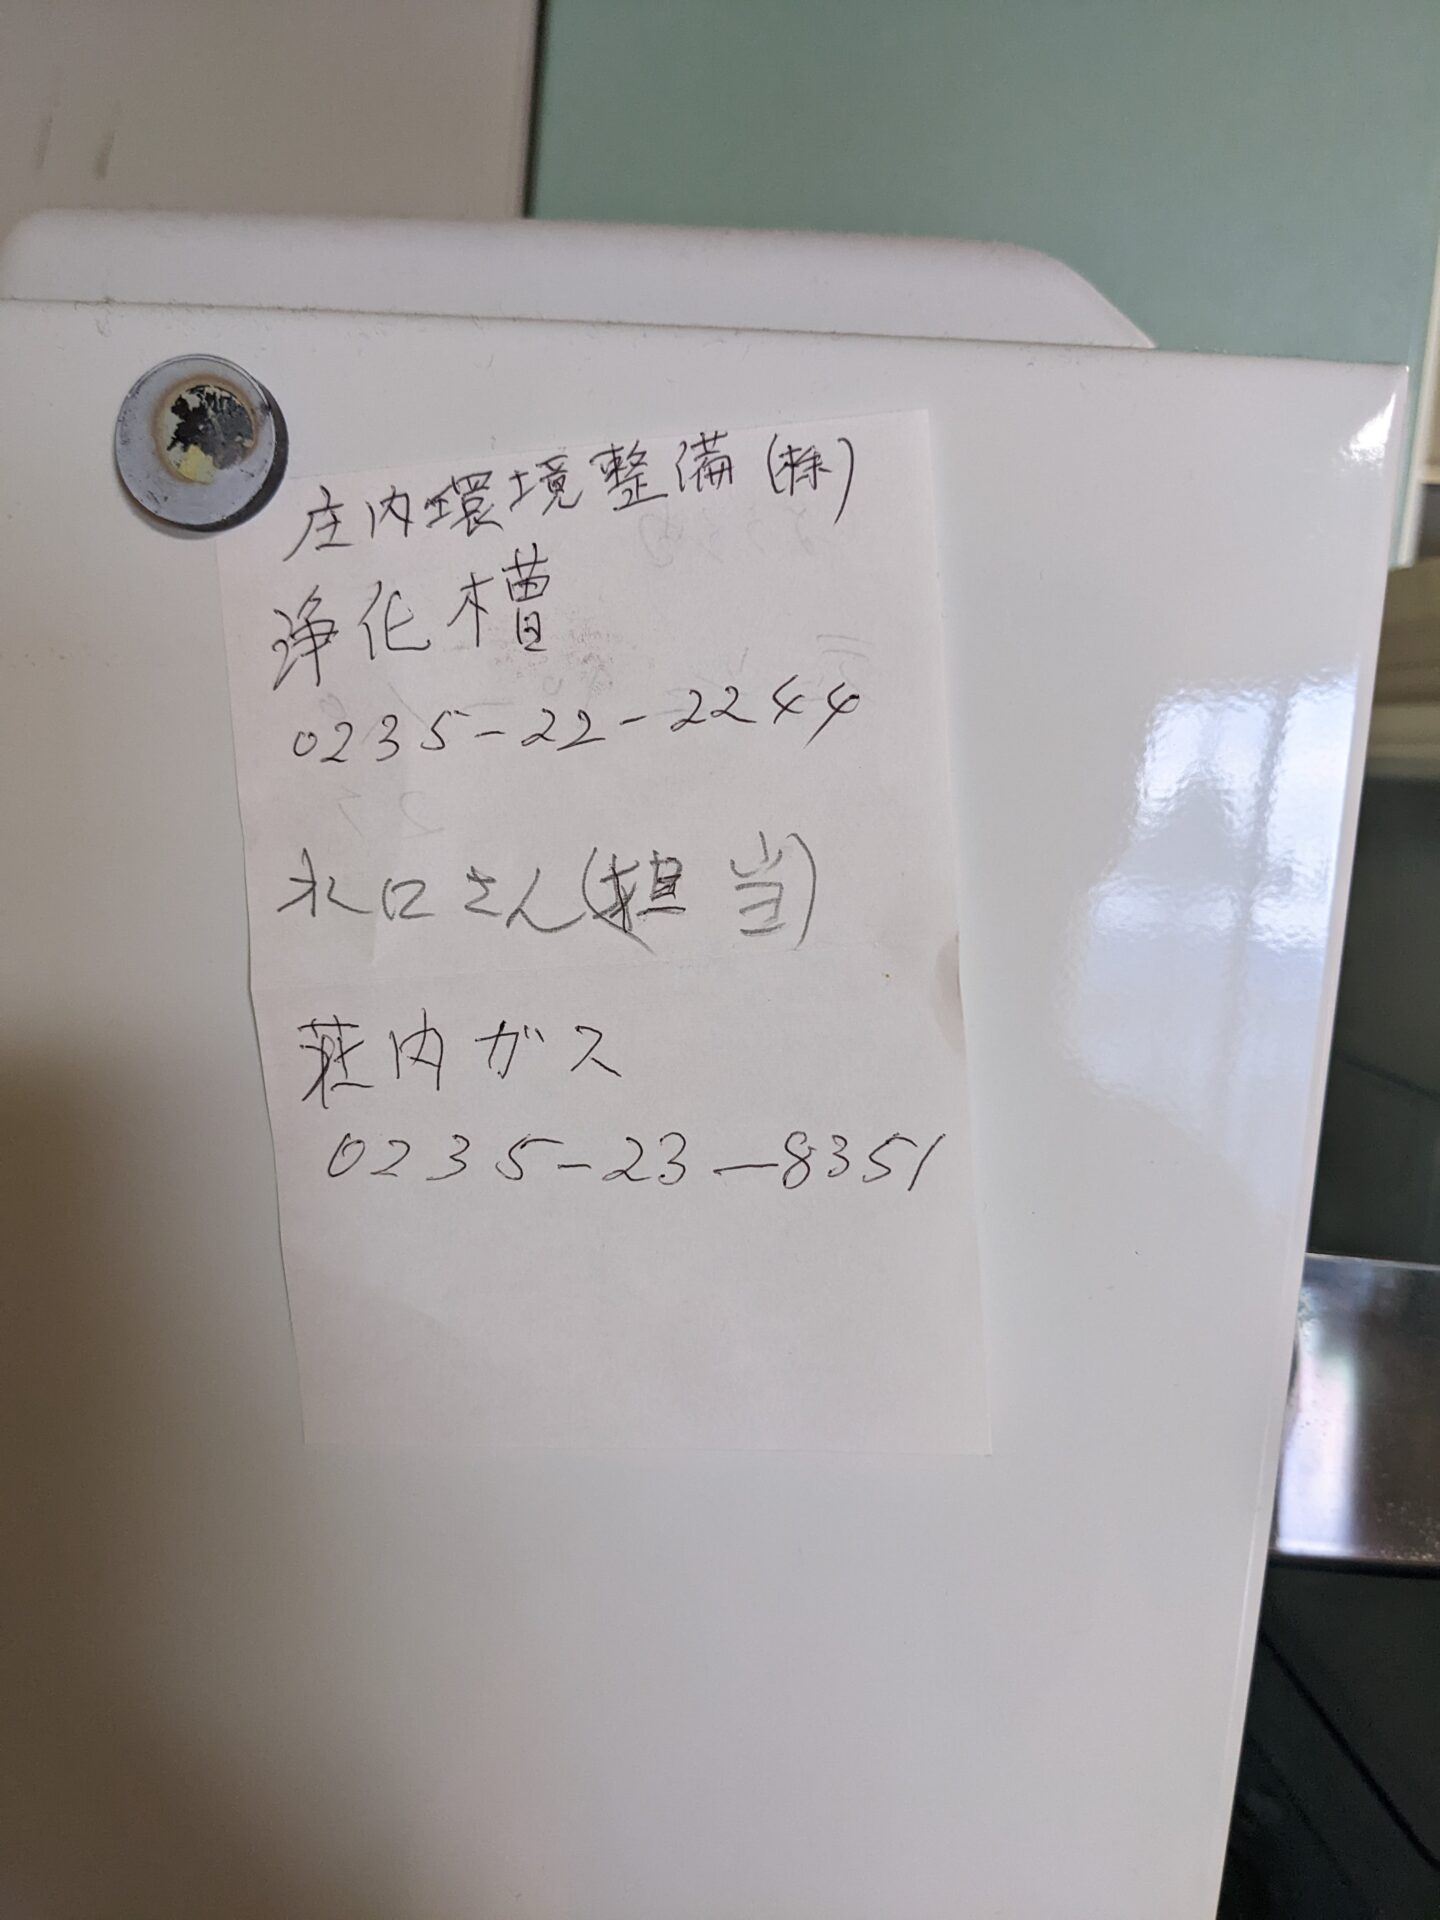 庄内環境整備(株)
浄化槽
0235-22-2244
水口さん(担当)
荘内ガス
0235-23-8351